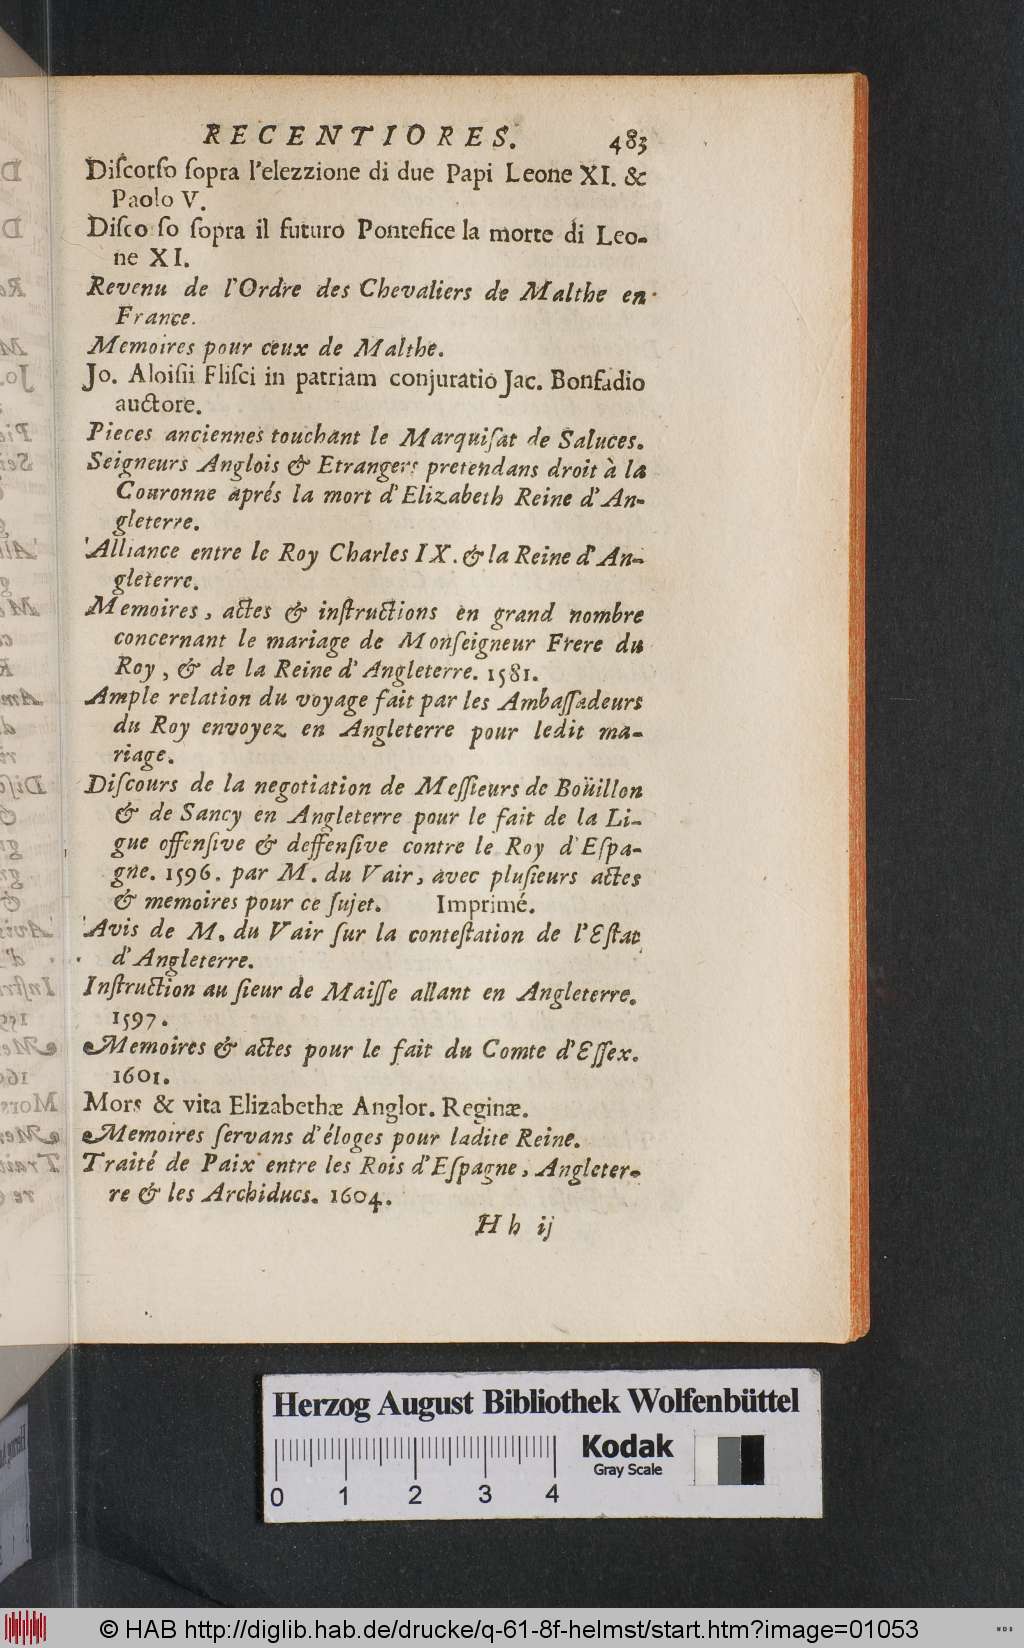 RECENTIORES. 483
Diſcorſo ſopra l'elezzione di due Papi Leone XI. &
Paolo V.
Diſco ſo ſopra il futuro Pontefice la morte di Leo-
ne XI.
Revenu de l'Ordre des Chevaliers de Malthe en
France.
Memoires pour ceux de Malthe.
Jo. Aloiſii Fliſci in patriam conjuratio Jac. Bonfadio
auctore.
Pieces anciennes touchant le Marquiſat de Saluces.
Seigneurs Anglois & Etrangers pretendans droit à la
Couronne aprés la mort d'Elizabeth Reine d'An-
gleterre.
Alliance entre le Roy Charles IX. & la Reine d'An-
gleterre.
Memoires, actes & inſtructions en grand nombre
concernant le mariage de Monſeigneur Frere du
Roy, & de la Reine d'Angleterre. 1581.
Ample relation du voyage fait par les Ambaſſadeurs
du Roy envoyez en Angleterre pour ledit ma-
riage.
Diſcours de la negotiation de Meſſieurs de Boüillon
& de Sancy en Angleterre pour le fait de la Li-
gue offenſive & deffenſive contre le Roy d'Eſpa-
gne. 1596. par M. du Vair, avec pluſieurs actes
& memoires pour ce ſujet. Imprimé.
Avis de M. du Vair ſur la conteſtation de l'Eſtat
d'Angleterre.
Inſtruction au ſieur de Maiſſe allant en Angleterre.
1597.
Memoires & actes pour le fait du Comte d'Eſſex.
1601.
Mors & vita Elizabethæ Anglor. Reginæ.
Memoires ſervans d'éloges pour ladite Reine.
Traité de Paix entre les Rois d'Eſpagne, Angleter-
re & les Archiducs. 1604.
H h ij
Herzog August Bibliothek Wolfenbüttel
Kodak
Gray Scale
0 1 2 3 4
© HAB http://diglib.hab.de/drucke/q-61-8f-helmst/start.htm?image=01053